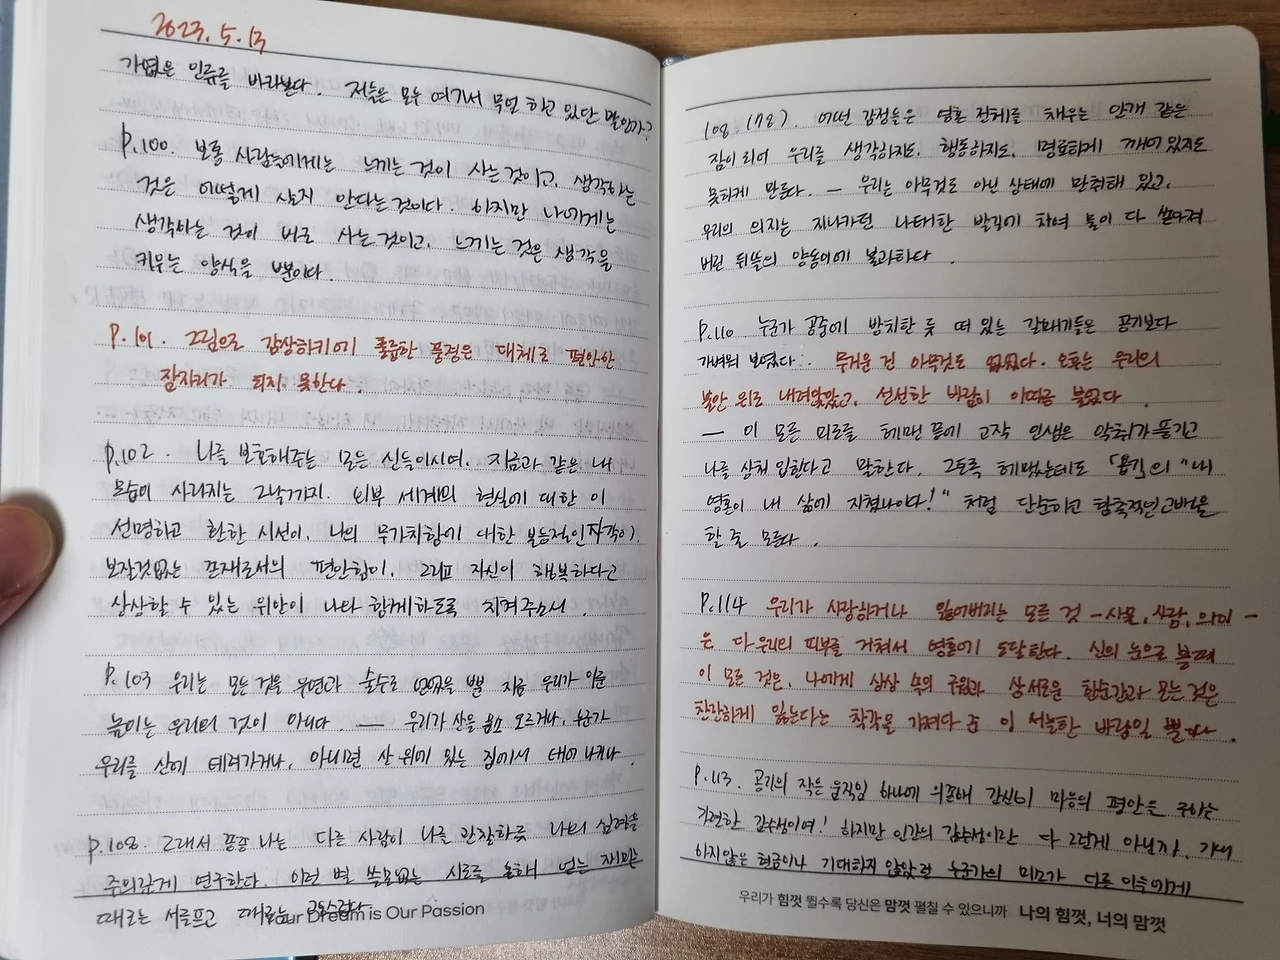 2023. 5. 13
가엾은 인류를 바라본다. 저들은 모두 여기서 무얼 하고 있단 말인가?
p.100. 보통 사람들에게는 느끼는 것이 사는 것이고, 생각하는
것은 어떻게 살지 안다는 것이다. 하지만 나에게는
생각하는 것이 바로 사는 것이고, 느끼는 것은 생각을
키우는 양식을 뿐이다.
P. 101. 그림으로 감상하기에 훌륭한 풍경은 대체로 편안한
잠자리가 되지 못한다.
p.102. 나를 보호해주는 모든 신들이시여, 지금과 같은 내
모습이 사라지는 그날까지. 외부 세계의 현실에 대한 이
선명하고 환한 시선이, 나의 무가치함에 대한 본능적인 자각이,
보잘것없는 존재로서의 편안함이. 그리고 자신이 행복하다고
상상할 수 있는 위안이 나와 함께하도록 지켜주소서.
P. 103 우리는 모든 것을 우연과 술수로 얻었을 뿐 지금 우리가 이룬
높이는 우리의 것이 아니다. — 우리가 산을 몸소 오르거나, 누군가
우리를 산에 데려가거나, 아니면 산 위에 있는 집에서 태어나거나.
p.108. 그래서 종종 나는 다른 사람이 나를 관찰하듯 나의 심경을
주의깊게 연구한다. 이런 별 쓸모없는 시도를 통해 얻는 재미는
때로는 서글프고 때로는 고통스럽다
Our Dream is Our Passion
108 (178). 어떤 감정들은 영혼 전체를 채우는 안개 같은
잠이 되어 우리를 생각하지도, 행동하지도, 명료하게 깨어있지도
못하게 만든다. — 우리는 아무것도 아닌 상태에 만취해 있고,
우리의 의지는 지나가던 나태한 발길에 차여 물이 다 쏟아져
버린 뒤뜰의 양동이에 불과하다.
P.110 누군가 공중에 방치한 듯 떠 있는 갈매기들은 공기보다
가벼워 보였다.. 무거운 건 아무것도 없었다. 오후는 우리의
불안 위로 내려앉았고, 선선한 바람이 이따금 불었다.
— 이 모든 미로를 헤맨 끝에 고작 인생은 악취가 풍기고
나를 상처 입힌다고 말한다. 그토록 헤맸는데도 「욥기」의 "내
영혼이 내 삶에 지쳤나이다!" 처럼 단순하고 함축적인 고백을
할 줄 모른다.
P.114 우리가 사랑하거나 잃어버리는 모든 것 - 사물, 사람, 의미 -
은 다 우리의 피부를 거쳐서 영혼에 도달한다. 신의 눈으로 볼 때
이 모든 것은, 나에게 상상 속의 구원과 상서로운 한순간과 모든 것은
찬란하게 잃는다는 착각을 가져다 준 이 서늘한 바람일 뿐이다.
P.113. 공기의 작은 움직임 하나에 의존해 간신히 마음의 평안을 구하는
가련한 감수성이여! 하지만 인간의 감수성이란 다 그런게 아닐까,
하지않은 현금이나 기대하지 않았던 누군가의 미소가 다른 이들에게
우리가 힘껏 뛸수록 당신은 맘껏 펼칠 수 있으니까 나의 힘껏, 너의 맘껏